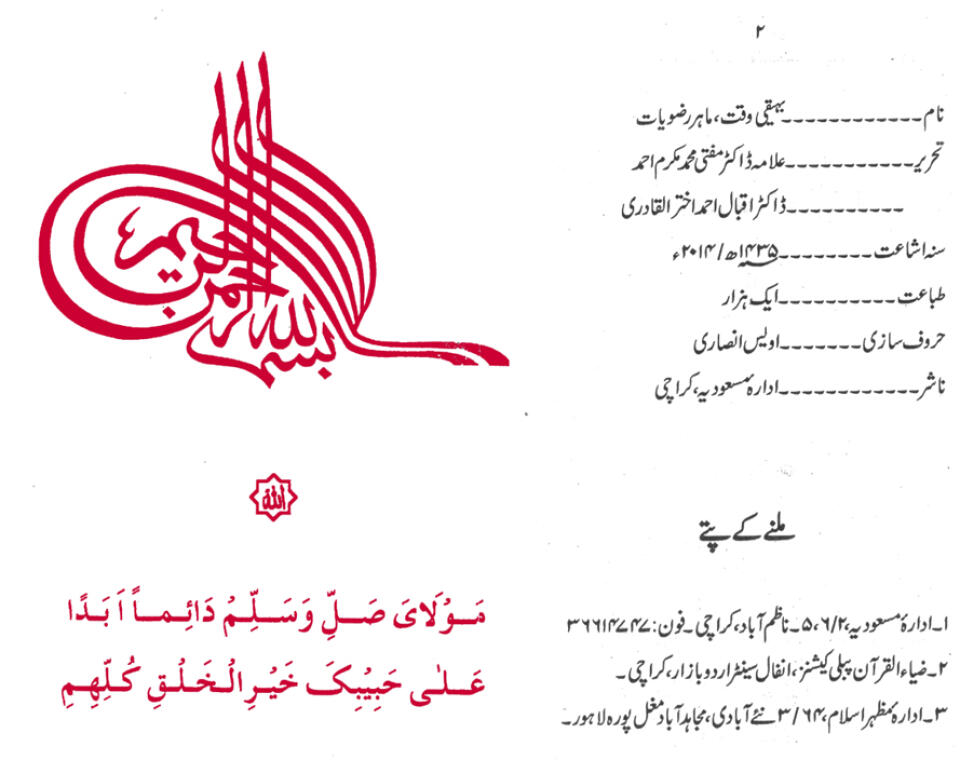 ۲
نام۔۔۔۔۔۔۔۔۔۔۔۔بیہقی وقت، ماہر رضویات
تحریر۔۔۔۔۔۔۔۔۔۔۔علامہ ڈاکٹر مفتی محمد مکرم احمد
۔۔۔۔۔۔۔۔۔۔ڈاکٹر اقبال احمد اختر القادری
سنہ اشاعت۔۔۔۔۔۔۔۔۱۴۳۵ھ/۲۰۱۴ء
طباعت۔۔۔۔۔۔۔۔۔۔ایک ہزار
حروف سازی۔۔۔۔۔۔۔اویس انصاری
ناشر۔۔۔۔۔۔۔۔۔۔۔۔ادارۂ مسعودیہ، کراچی
ملنے کے پتے
۱۔ادارۂ مسعودیہ، ۶/۲، ۵۔ناظم آباد، کراچی۔فون: ۳۶۶۱۴۷۴۷
۲۔ضیاء القرآن پبلی کیشنز، انفال سینٹر اردو بازار، کراچی۔
۳۔ادارۂ مظہر اسلام، ۳/۶۴ نئے آبادی، مجاہد آباد مغل پورہ لاہور۔
بسم الله الرحمن الرحيم
الله
مَوْلَایَ صَلِّ وَسَلِّمْ دَائِماً اَبَدًا
عَلٰی حَبِیْبِکَ خَیْرِ الْخَلْقِ کُلِّهِمِ